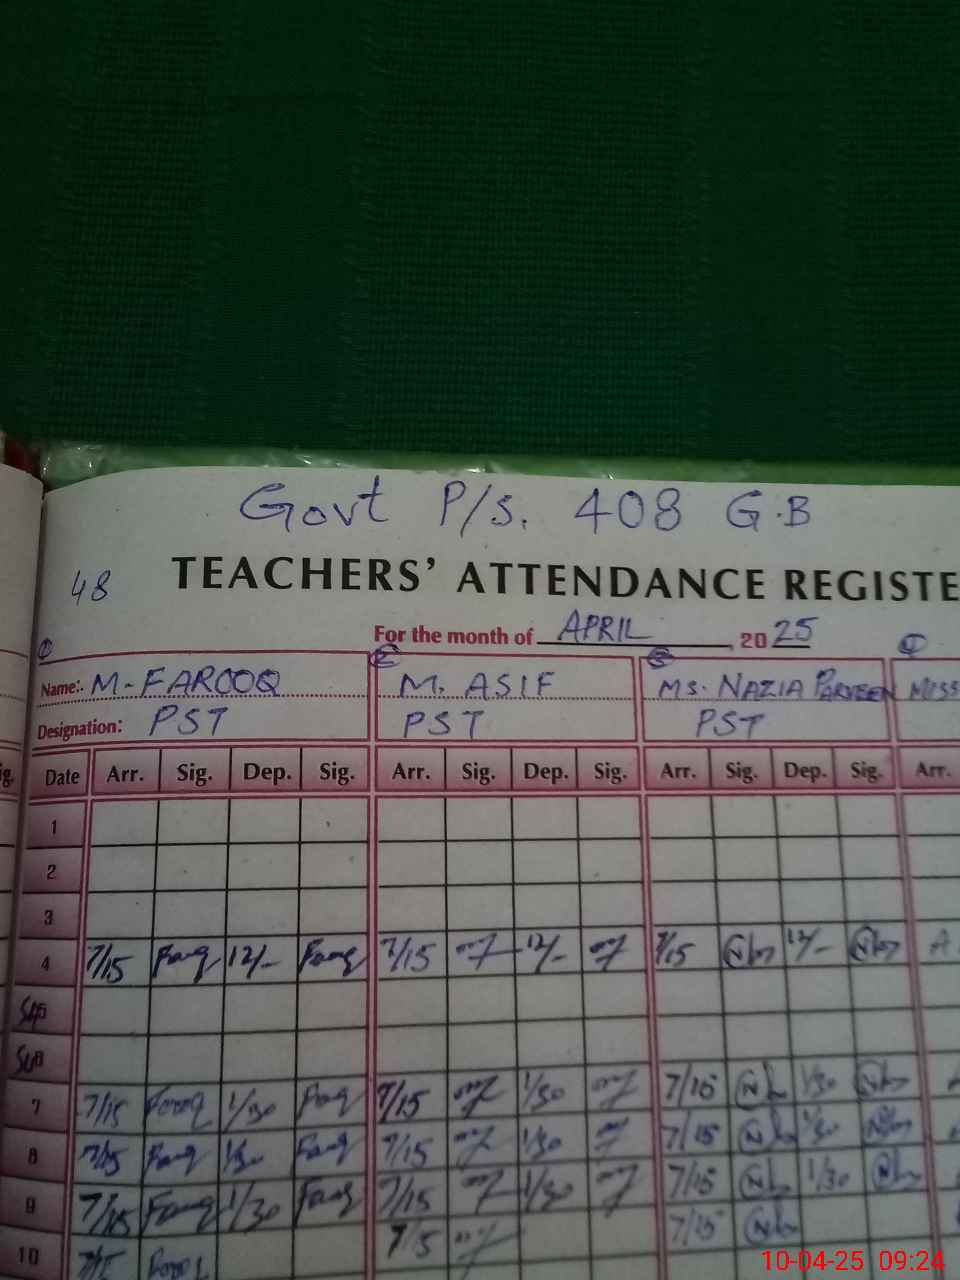 Govt P/s. 408 G.B
48 TEACHERS' ATTENDANCE REGISTE
For the month of APRIL, 2025
1 2 3 4
Name:. M-FAROOQ M. ASIF Ms. NAZIA PARVEEN MISS
Designation: PST PST PST
ig. Date Arr. Sig. Dep. Sig. Arr. Sig. Dep. Sig. Arr. Sig. Dep. Sig. Arr.
1
2
3
4 7/15 Farooq 12/- Farooq 7/15 12/- 7/15 12/- A
5
6
7 7/15 Farooq 1/30 Farooq 7/15 1/30 7/15 1/30
8 7/15 Farooq 1/30 Farooq 7/15 1/30 7/15 1/30
9 7/15 Farooq 1/30 Farooq 7/15 1/30 7/15 1/30
10 7/15 Farooq 7/15 7/15
10-04-25 09:24